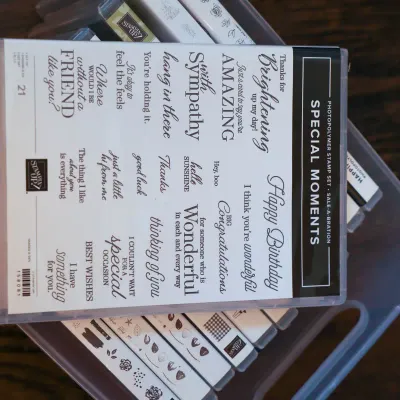 PHOTOPOLYMER STAMP SET • SALE-A-BRATION
SPECIAL MOMENTS
Thanks for
Brightening
up my day!
Just a card to say you're
AMAZING
with
Sympathy
hang in there
You're holding it.
It's okay to
feel the feels
Where
WOULD I BE
without a
FRIEND
like you?
21
Happy Birthday
I think you're wonderful
BIG
Congratulations
Hey, boo
for someone who is
Wonderful
in each and every way
hello
SUNSHINE
Thanks
thinking of you
good luck
I COULDN'T WAIT
FOR A
special
OCCASION
just a little
hi from me
BEST WISHES
The thing I like
about you
is everything
I have
something
for you
STAMPIN' UP!